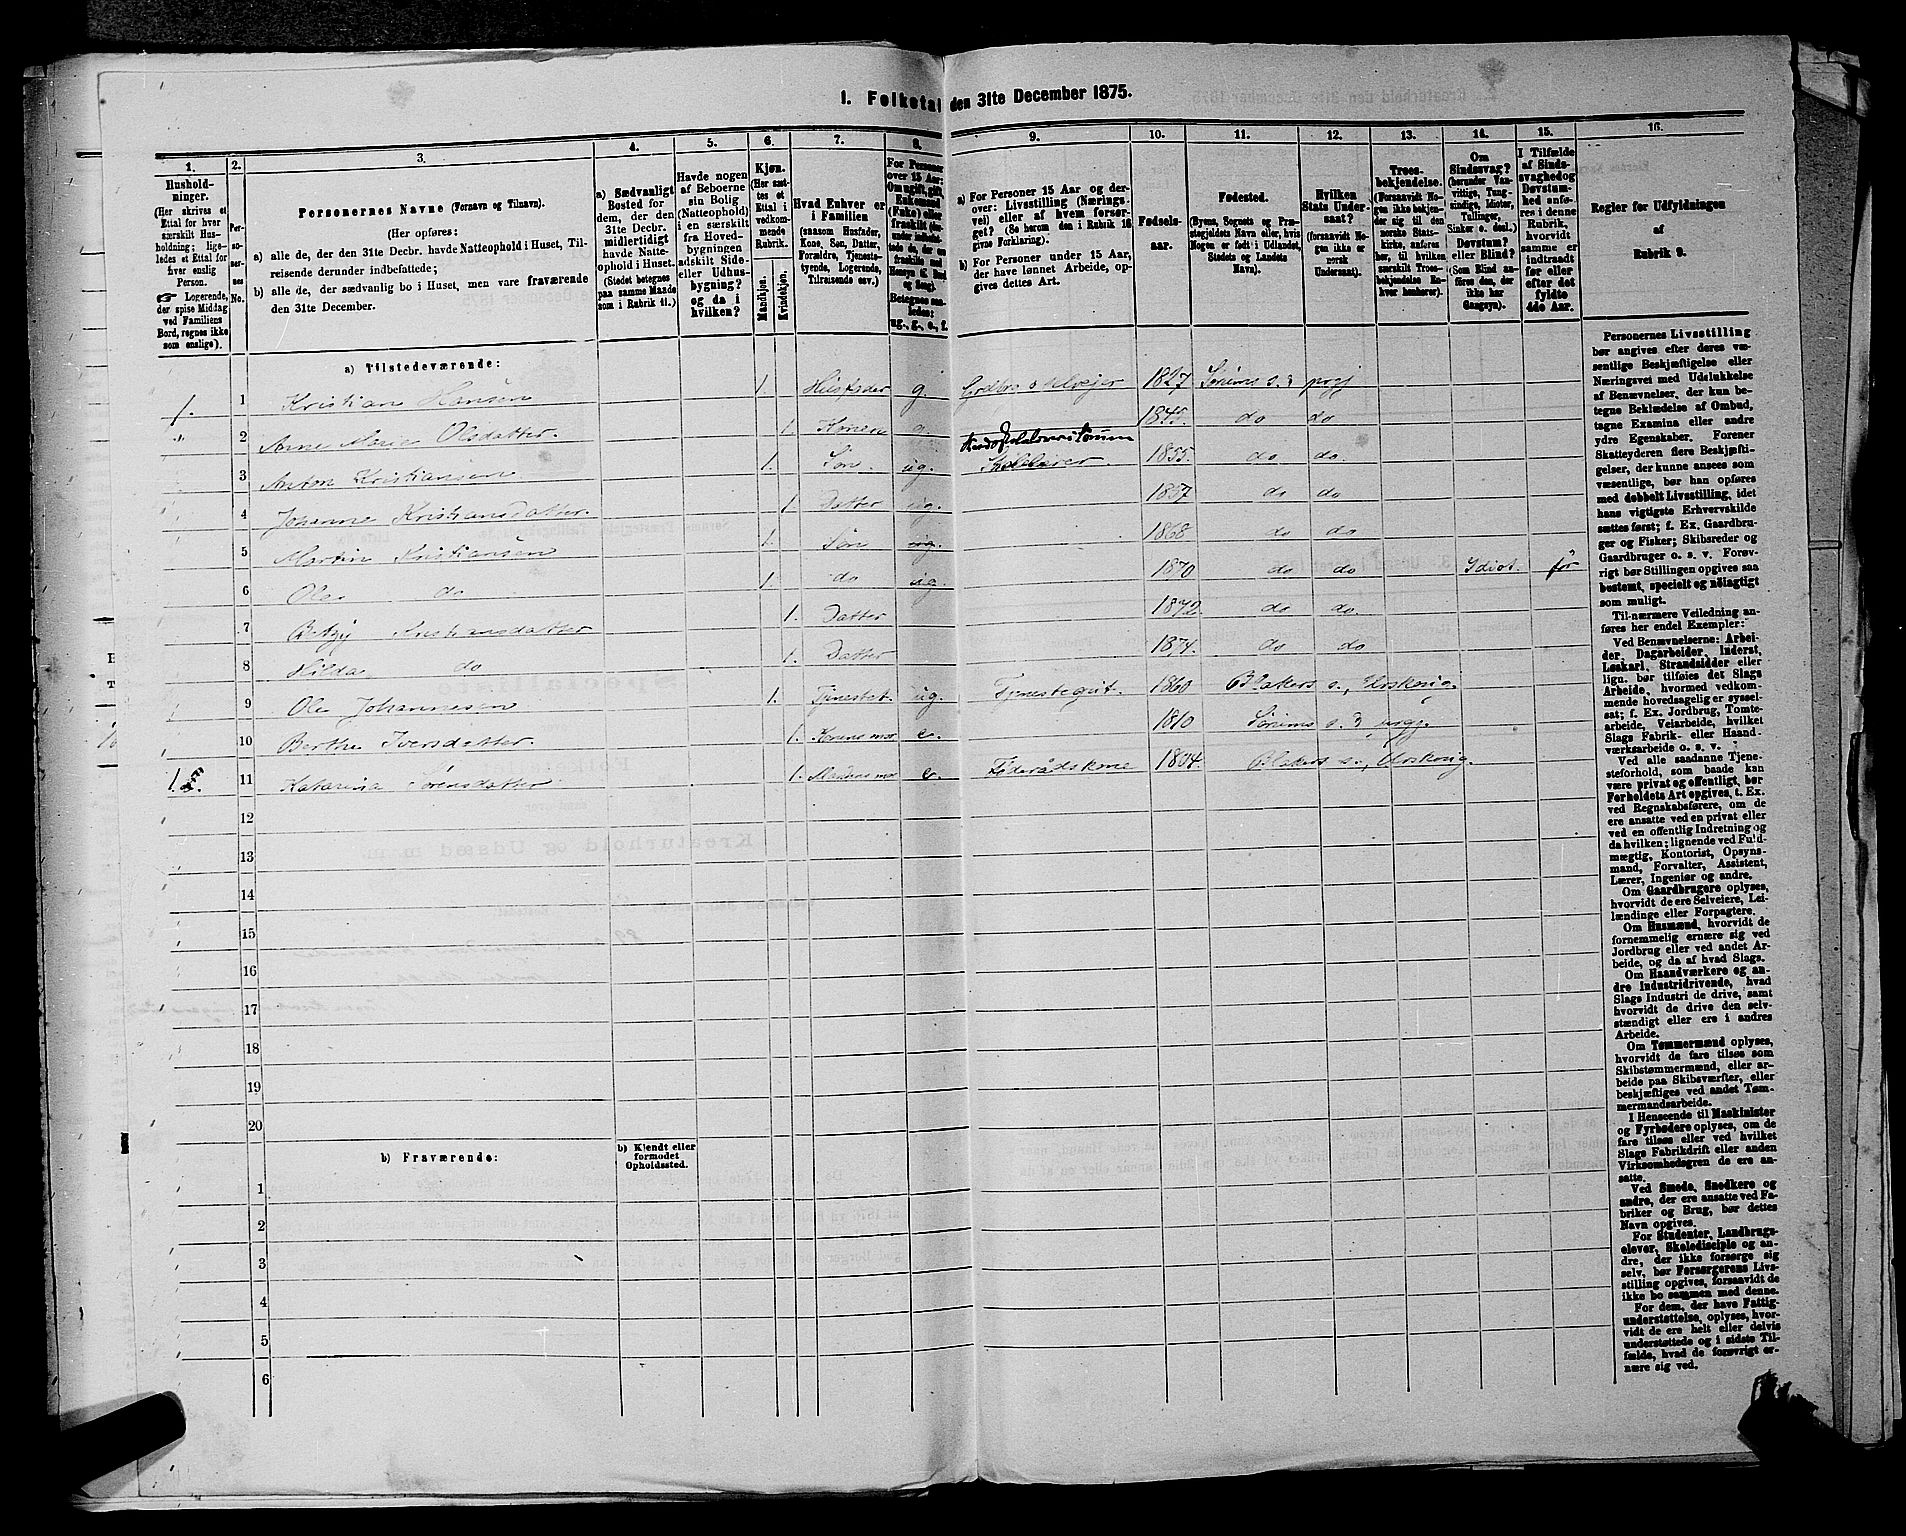 1. Folketal den 31te December 1875.
1. 2. 3. 4. 5. 6. 7. 8. 9. 10. 11. 12. 13. 14. 15. 16.
Husholdninger.
(Her skrives et
Ettal for hver
særskilt Husholdning;
ligeledes et Ettal for
hver enslig
Person.
☞ Logerende,
der spise Middag
ved Familiens
Bord, regnes ikke
som enslige).
Personernes No.
Personernes Navne (Fornavn og Tilnavn).
(Her opføres:
a) alle de, der den 31te Decbr. havde Natteophold i Huset, Tilreisende derunder indbefattede;
b) alle de, der sædvanlig bo i Huset, men vare fraværende
den 31te December.
a) Sædvanligt
Bosted for
dem, der den
31te Decbr.
midlertidigt
havde Natteophold
i Huset.
(Stedet betegnes
paa samme Maade
som i Rubrik 11.)
Havde nogen
af Beboerne
sin Bolig
(Natteophold)
i en særskilt
fra Hovedbygningen
adskilt Side-
eller Udhusbygning?
og da i
hvilken?
Kjøn.
(Her sættes et
Ettal i
vedkommende
Rubrik.
Mandkjøn.
Kvindekjøn.
Hvad Enhver er
i Familien
(saasom Husfader,
Kone, Søn, Datter,
Forældre, Tjenestetyende,
Logerende,
Tilreisende osv.)
For Personer
over 15 Aar:
Om ugift, gift,
Enkemand
(Enke) eller
fraskilt
Betegnes saaledes:
ug., g., e., f.
a) For Personer 15 Aar og derover:
Livsstilling (Næringsvei)
eller af hvem forsørget?
(Se herom den i Rubrik 16
givne Forklaring).
b) For Personer under 15 Aar,
der have lønnet Arbeide, opgives
dettes Art.
Fødselsaar.
Fødested.
(Byens, Sognets og Præstegjeldets
Navn eller, hvis
Nogen er født i Udlandet,
Stedets og Landets
Navn).
Hvilken
Stats Undersaat?
(forsaavidt Nogen
ikke er
norsk
Undersaat).
Troesbekjendelse.
(Forsaavidt Nogen
ikke bekjender
sig til den
norske Statskirke,
anføres
her, til hvilken
særskilt Troesbekjendelse
Enhver henhører).
Om
Sindssvag?
(herunder Vanvittige,
Tungsindige,
Idioter,
Tullinger,
Sinker o. desl.)
Døvstum?
eller Blind?
(Som Blind anføres
den, der
ikke har
Gangsyn).
I Tilfælde
af Sindssvaghed
og
Døvstumhed
anføres
i denne
Rubrik,
hvorvidt
samme er
indtraadt
før eller
efter det
fyldte
4de Aar.
Regler for Udfyldningen
af
Rubrik 9.
a) Tilstedeværende:
1. 1 Kristian Hansen 1. Husfader g. Grdbr. o Selveier 1827 Sørums s. & prgj
" 2 Anne Marie Olsdatter. 1. Konen g. 1845. do do
3 Anton Kristiansen 1. Søn. ug. Skolelærer 1855. do do.
4 Johanne Kristiansdatter. 1 Datter ug. 1857 do do
5 Martin Kristiansen 1. Søn ug. 1868 do do
6 Ole do 1. do ug 1870 do do Idiot. før
7 Betzy Kristiansdatter 1. Datter 1872. do do.
8 Hilda do 1. Datter 1874. do do
9 Ole Johannesen 1. Tjenestet. ug. Tjenestegut. 1860 Blakers s., Urskoug.
10 Berthe Iversdatter. 1. Konens mor e. 1810 Sørums s. & prgj.
1. 11 Katarina Sørensdatter 1. Mandens mor e. Føderådskone 1804. Blakers s., Urskoug.
12
13
14
15
16
17
18
19
20
b) Fraværende:
b) Kjendt eller
formodet
Opholdssted.
1
2
3
4
5
6
Personernes Livsstilling
bør angives efter deres væsentlige
Beskjæftigelse eller
Næringsvei med Udelukkelse
af Benævnelser, der kun betegne
Beklædelse af Ombud,
tagne Examina eller andre
ydre Egenskaber. Forener
Skatteyderen flere Beskjæftigelser,
der kunne ansees som
væsentlige, bør han opføres
med dobbelt Livsstilling, idet
hans vigtigste Erhvervskilde
sættes først; f. Ex. Gaardbruger
og Fisker; Skibsreder og
Gaardbruger o. s. v. Forøvrigt
bør Stillingen opgives saa
bestemt, specielt og nøiagtigt
som muligt.
Til nærmere Veiledning anføres
her endel Exempler:
Ved Benævnelserne: Arbeider,
Dagarbeider, Inderst,
Løskarl, Strandsidder eller
lign. bør tilføies det Slags
Arbeide, hvormed vedkommende
hovedsagelig er sysselsat;
f. Ex. Jordbrug, Tomtearbeide,
Veiarbeide, hvilket
Slags Fabrik- eller Haandværksarbeide
o. s. v.
Ved alle saadanne Tjenesteforhold,
som baade kan
være privat og offentligt, bør
Forholdets Art opgives, t. Ex.
ved Regnskabsførere, om de
ere ansatte ved en privat eller
ved en offentlig Indretning og
da hvilken; lignende ved Fuldmægtig,
Kontorist, Opsynsmand,
Forvalter, Assistent,
Lærer, Ingeniør og andre.
Om Gaardbrugere oplyses,
hvorvidt de ere Selveiere, Leilændinge
eller Forpagtere.
Om Husmænd, hvorvidt de
fornemmelig ernære sig ved
Jordbrug eller ved andet Arbeide,
og da af hvad Slags.
Om Haandværkere og andre
Industridrivende, hvad
Slags Industri de drive, samt
hvorvidt de drive den selvstændigt
eller ere i andres
Arbeide.
Om Tømmermænd oplyses,
hvorvidt de fare tilsøs som
Skibstømmermænd, eller arbeide
paa Skibsværfter, eller
beskjæftiges ved andet Tømmermandsarbeide.
I Henseende til Maskinister
og Fyrbødere oplyses, om de
fare tilsøs eller ved hvilket
Slags Fabrikdrift eller anden
Virksomhedsgren de ere ansatte.
Ved Smede, Snedkere og
andre, der ere ansatte ved Fabriker
og Brug, bør dettes
Navn opgives.
For Studenter, Landbrugselever,
Skoledisciple og andre,
der ikke forsørge sig
selv, bør Forsørgerens Livsstilling
opgives, forsaavidt de
ikke bo sammen med denne.
For dem, der have Fattigunderstøttelse,
oplyses, hvorvidt
de ere helt eller delvis
understøttede og i sidste Tilfælde,
hvad de forøvrigt ernære
sig ved.